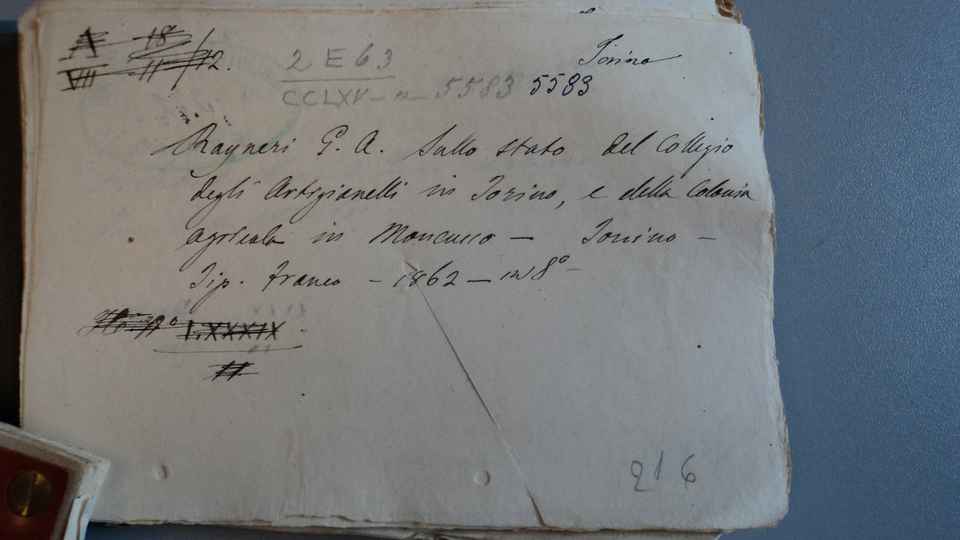 A 18
VII 11/12.
2 E 63
Torino
CCLXV - n - 5583 5583
Rayneri G. A. Sullo stato del Collegio
degli Artigianelli in Torino, e della Colonia
agricola in Moncucco - Torino -
Tip. Franco - 1862 - in 8°-
n° LXXXIX
11
216